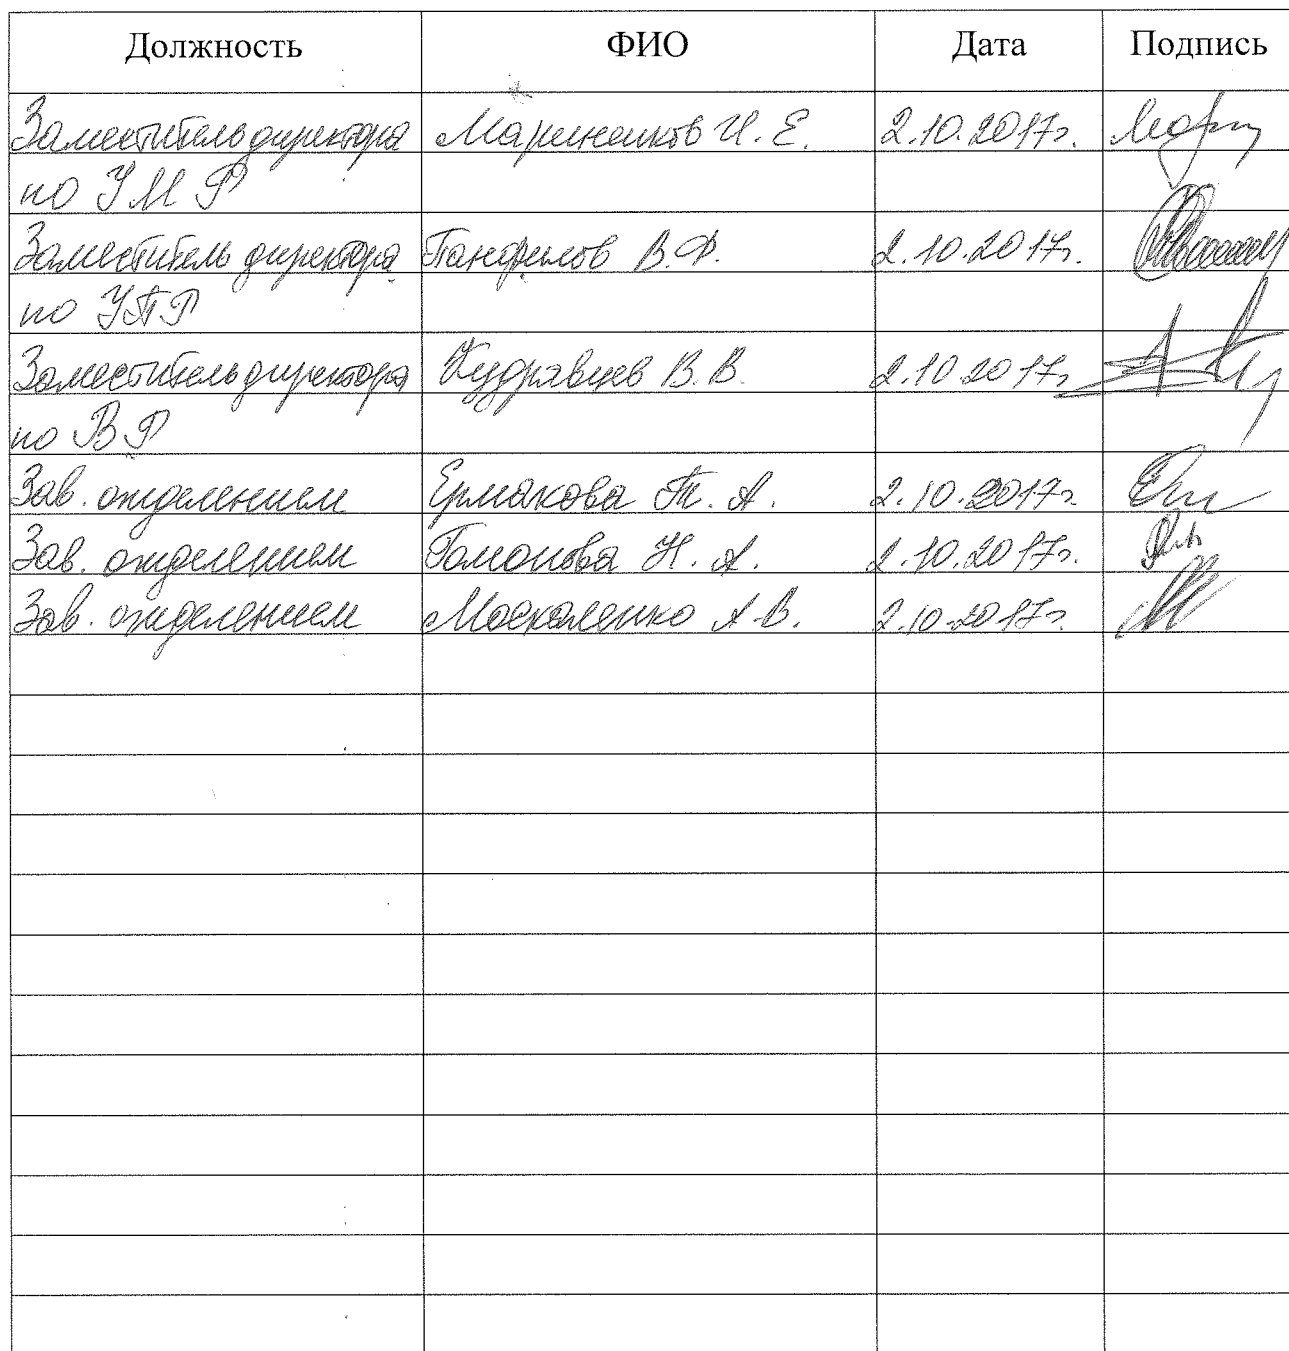 Должность ФИО Дата Подпись
Заместитель директора Мариненков И. Е. 2.10.2017г.
по УМР
Заместитель директора Панфилов В.Ф. 2.10.2017г.
по УПР
Заместитель директора Кудрявцев В.В. 2.10.2017г
по ВР
Зав. отделением Ермакова Т. А. 2.10.2017г
Зав. отделением Н. А. 2.10.2017г.
Зав. отделением Москаленко А.В. 2.10.2017г.